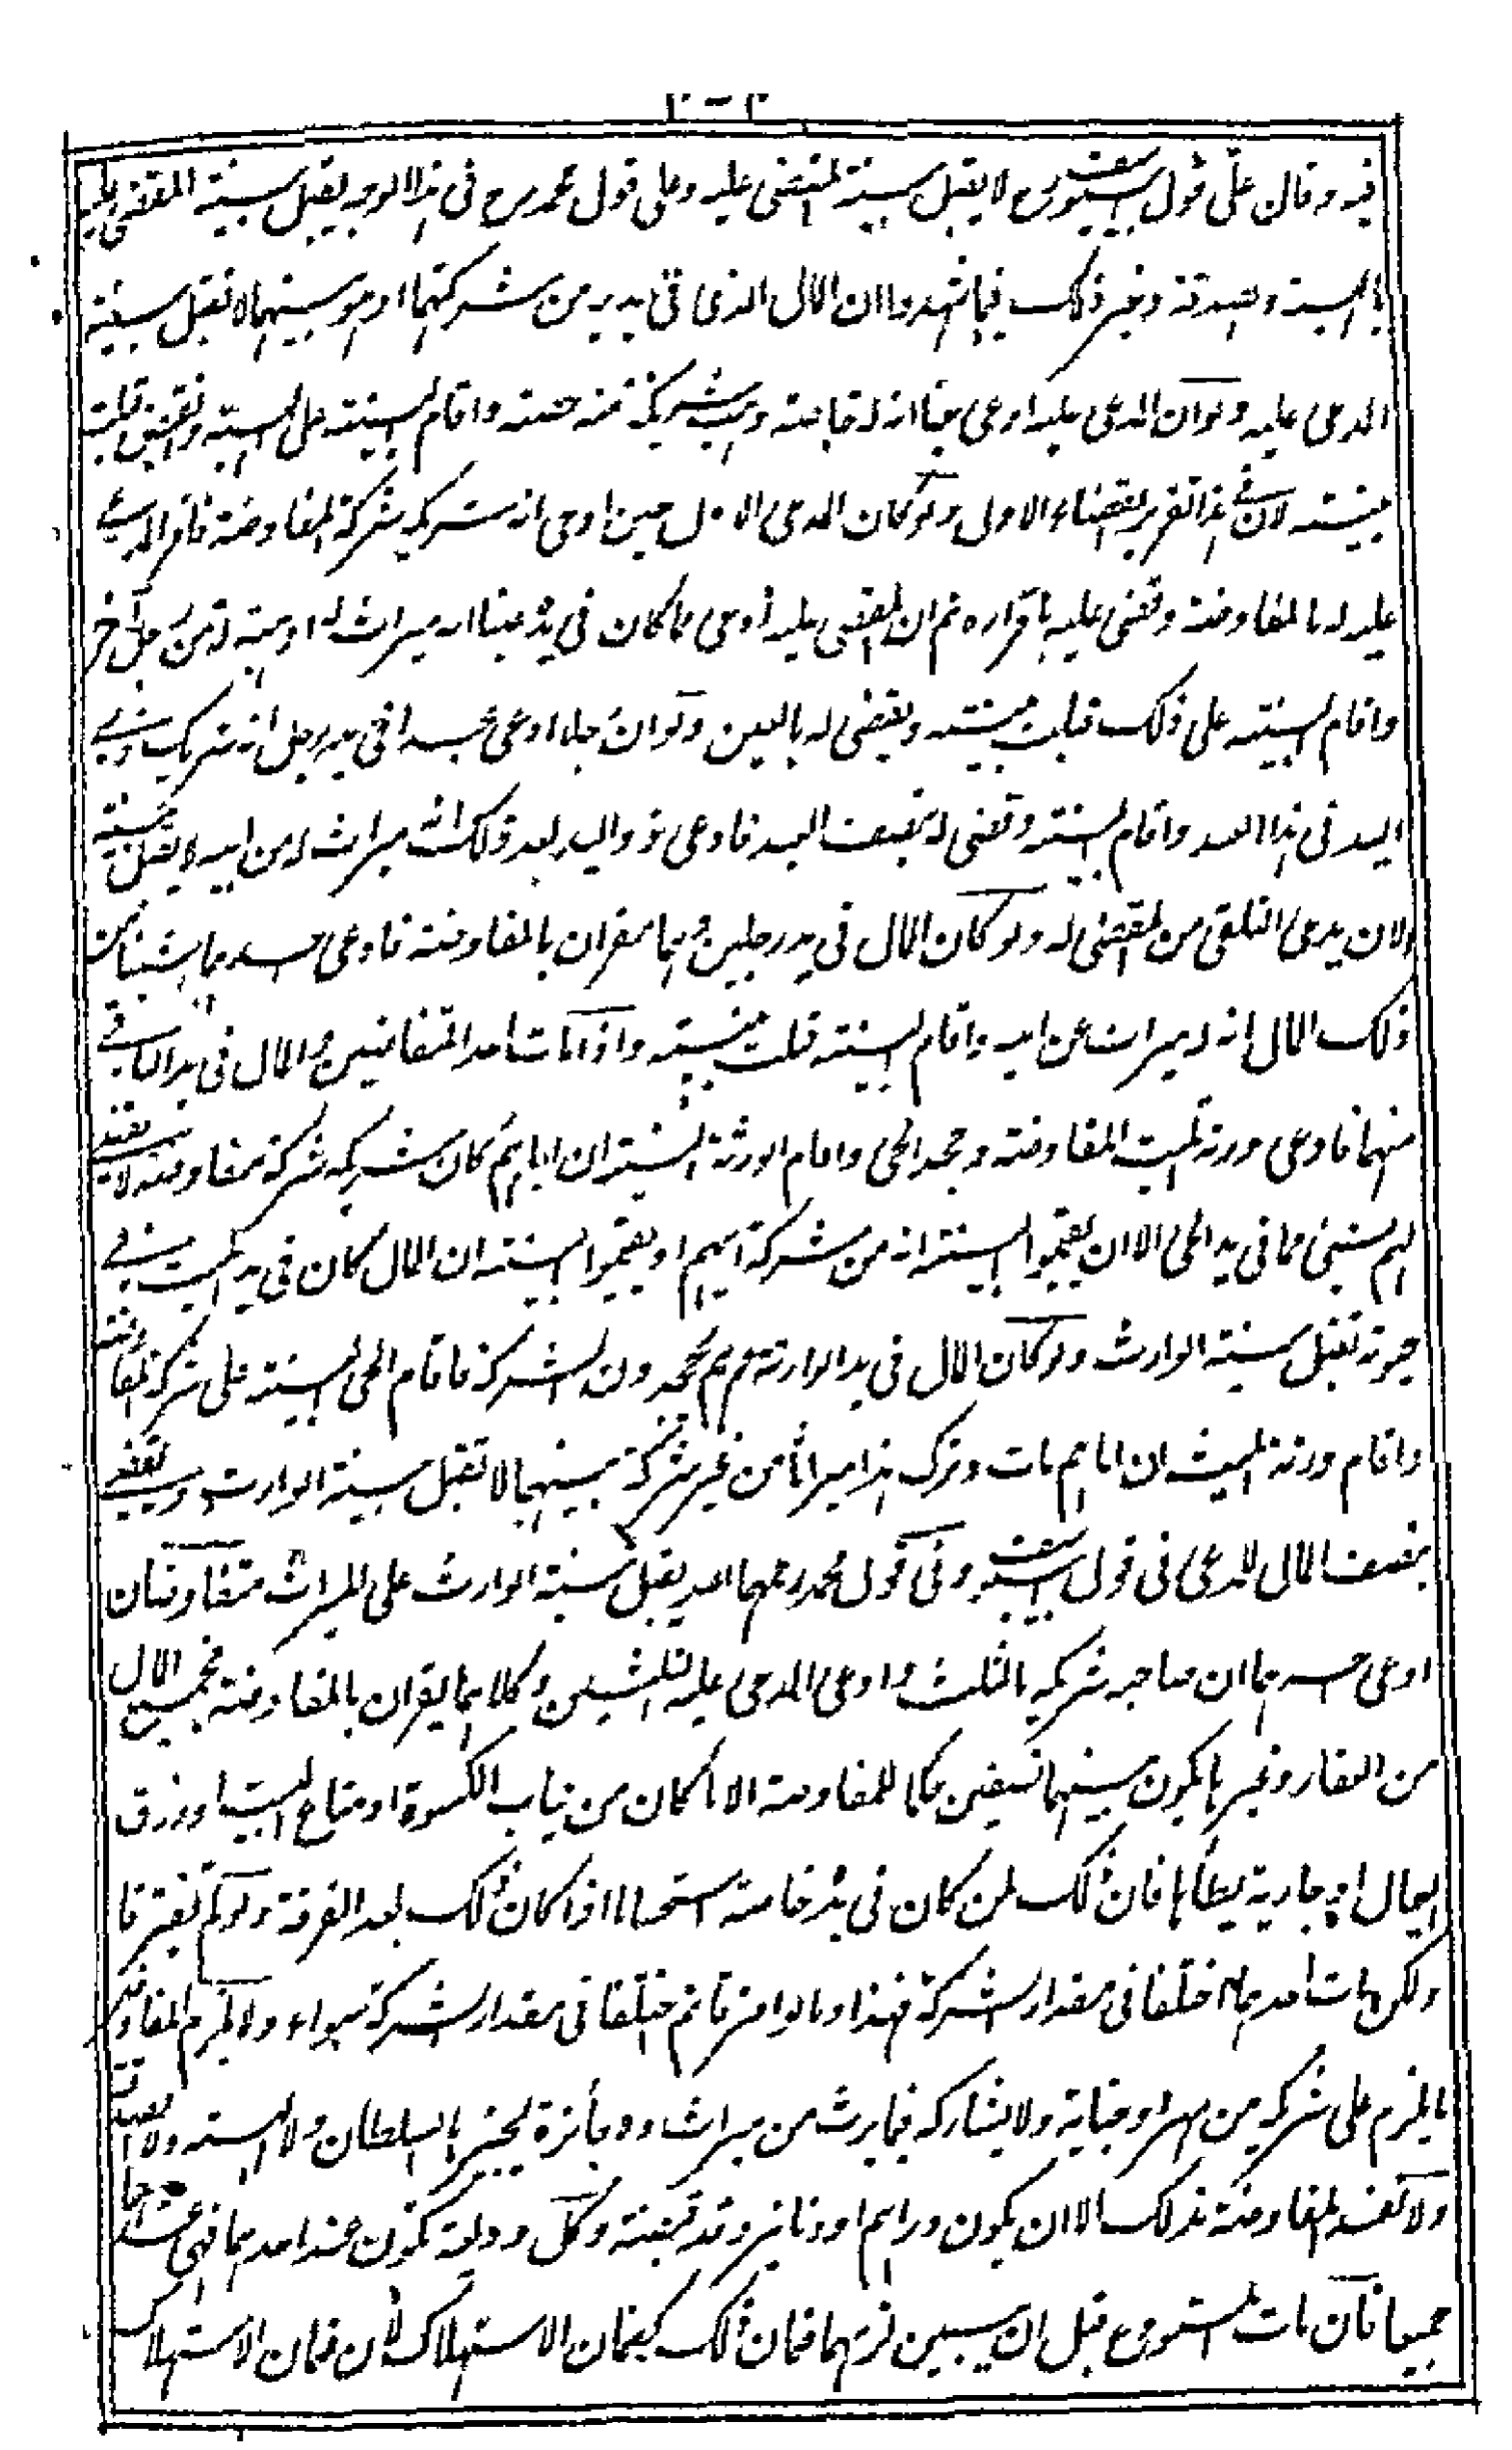 فيه وقال على قول ابي يوسف رح لا يقبل بينة المقضى عليه وعلى قول محمد رح في هذا الوجه يقبل بينة المقضى عليه
بالهبة والصدقة وغير ذلك فيما شهدوا ان المال الذى فى يديه من شركتهما او هو بينهما لا تقبل بينة
المدعى عليه ولو ان المدعى عليه ادعى عينا انه له خاصة وهب شريكه منه حصته واقام البينة على الهبة والقبض قبلت
بينته لان فى هذا تقرير القضاء الاول ولو كان المدعى الاول حين ادعى انه شريكه شركة المفاوضة فاقر المدعى
عليه له بالمفاوضة وقضى عليه باقراره ثم ان المقضى عليه ادعى مما كان فى يده عينا انه ميراث له او هبة له من رجل آخر
واقام البينة على ذلك قبلت بينته ويقضى له بالعين ولو ان رجلا ادعى عبدا فى يد رجل انه شريك ذى
اليد فى هذا العبد واقام البينة وقضى له بنصف العبد فادعى ذو اليد بعد ذلك انه ميراث له من ابيه لا يقبل بينته
الا ان يدعى التلقى من المقضى له ولو كان المال فى يد رجلين وهما مقران بالمفاوضة فادعى احدهما شيئا من
ذلك المال انه له ميراث عن ابيه واقام البينة قبلت بينته واذا مات احد المتفاوضين والمال فى يد الباقى
منهما فادعى ورثة الميت المفاوضة وجحد الحى واقام الورثة البينة ان اباهم كان شريكه شركة مفاوضة لا يقضى
لهم بشئ مما فى يد الحى الا ان يقيموا البينة انه من شركة ابيهم او يقيموا البينة ان المال كان فى يد الميت فى
حيوته تقبل بينة الوارث ولو كان المال فى يد الوارثة وهم يجحدون الشركة فاقام الحى البينة على شركة المفاوضة
واقام ورثة الميت ان اباهم مات وترك هذا ميراثا من غير شركة بينهما لا تقبل بينة الوارث ويقضى
بنصف المال للمدعى فى قول ابى يوسف وفى قول محمد رحمهما الله يقبل بينة الوارث على الميراث متفاوضان
ادعى احدهما ان صاحبه شريكه بالثلث وادعى المدعى عليه الثلثين وكلاهما يقران بالمفاوضة فجميع المال
من العقار وغيرها يكون بينهما نصفين حكما للمفاوضة الا ما كان من ثياب الكسوة او متاع البيت او رزق
العيال او جارية يطأها فان ذلك لمن كان فى يده خاصة استحسانا اذا كان ذلك بعد الفرقة ولو لم يفترقا
ولكن مات احدهما ثم اختلفا فى مقدار الشركة فهذا وما لو افترقا ثم اختلفا فى مقدار الشركة سواء ولا يلزم المفاوض
ما يلزم على شريكه من مهر او جناية ولا يشاركه فيما يرث من ميراث ولا جائزة يجيزها السلطان ولا الهبة ولا الصدقة
ولا تفسد المفاوضة بذلك الا ان يكون دراهم او دنانير وقد قبضته وكل وديعة تكون عند احدهما فهى عندهما
جميعا فان مات المستودع قبل ان يبين لزمهما ضمان ذلك كضمان الاستهلاك لان ضمان الاستهلاك